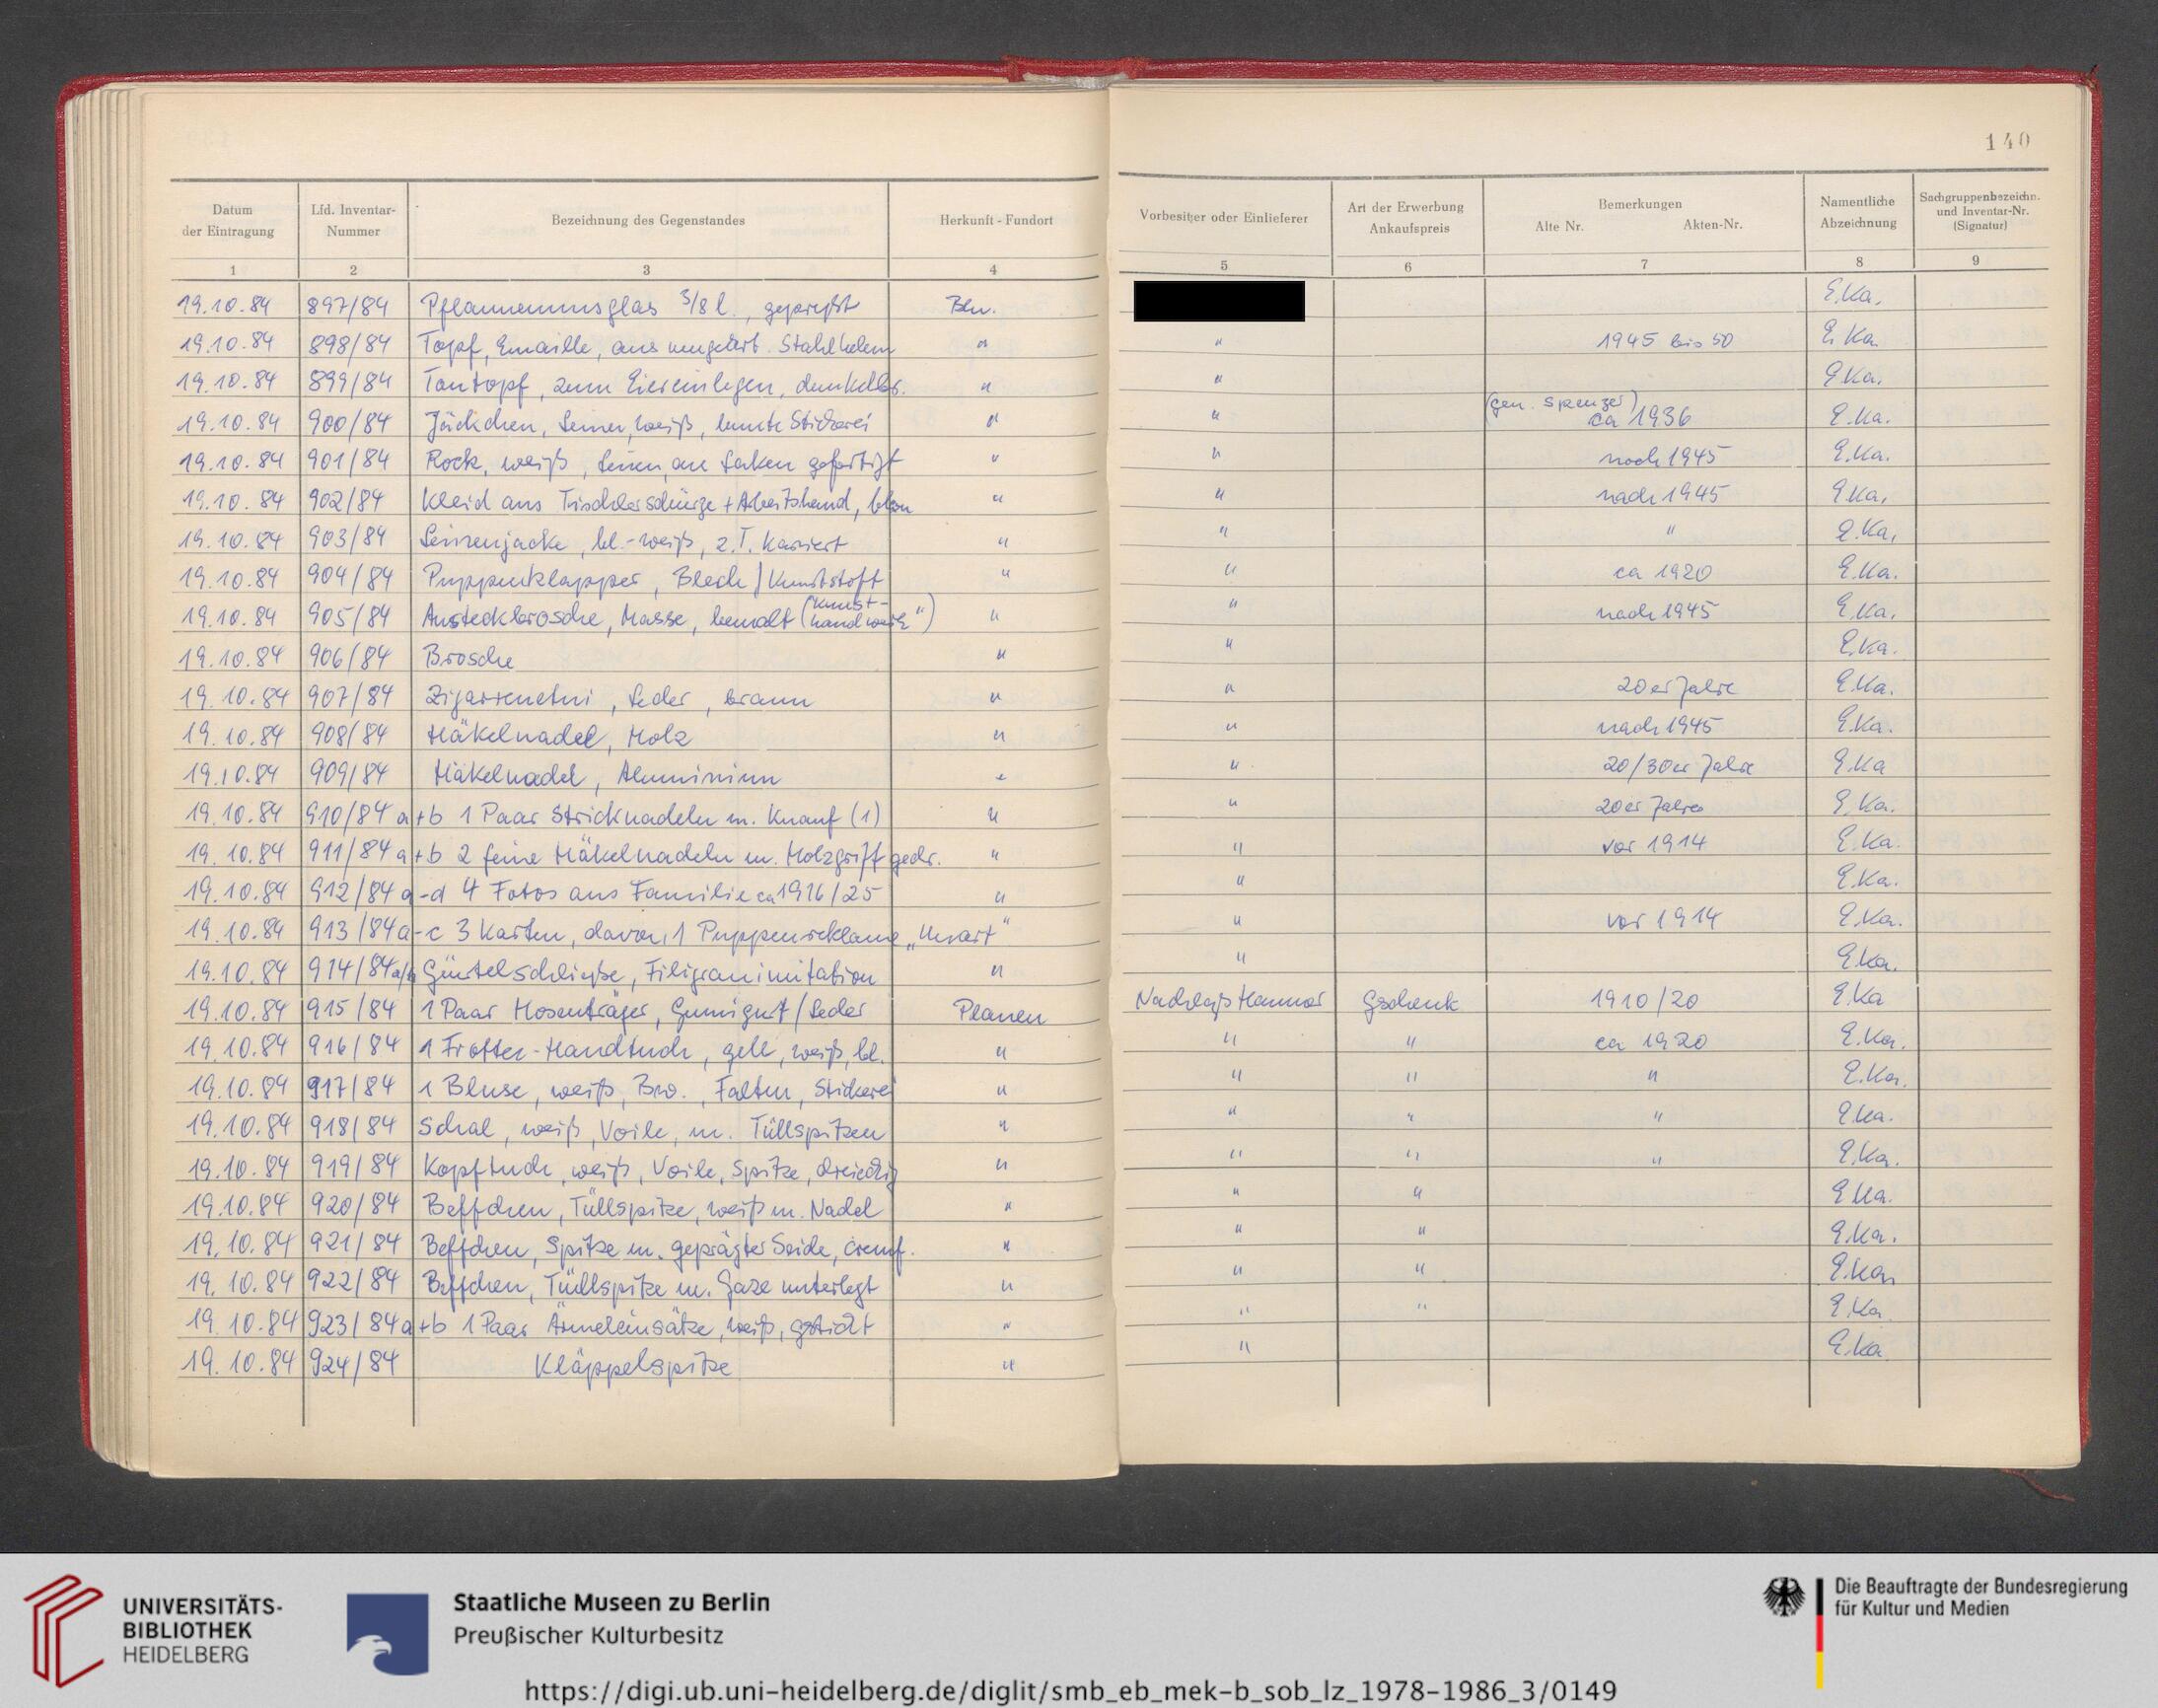 140
Datum der Eintragung | Lfd. Inventar-Nummer | Bezeichnung des Gegenstandes | Herkunft - Fundort | Vorbesitzer oder Einlieferer | Art der Erwerbung Ankaufspreis | Bemerkungen Alte Nr. Akten-Nr. | Namentliche Abzeichnung | Sachgruppenbezeichn. und Inventar-Nr. (Signatur)
1 | 2 | 3 | 4 | 5 | 6 | 7 | 8 | 9
19.10.84 | 897/84 | 3/8 l., gepreßt | Bln. | E.Ka.
19.10.84 | 898/84 | Topf, Emaille, aus umgearb. Stahlhelm | " | " | 1945 bis 50 | E.Ka.
19.10.84 | 899/84 | Tontopf, zum Eiereinlegen, dunkelbr. | " | " | E.Ka.
19.10.84 | 900/84 | Jäckchen, Leinen, weiß, bunte Stickerei | " | " | (gen. Spenzer) ca 1936 | E.Ka.
19.10.84 | 901/84 | Rock, weiß, Leinen, aus Laken gefertigt | " | " | nach 1945 | E.Ka.
19.10.84 | 902/84 | Kleid aus Tischlerschürze + Arbeitshemd, blau | " | " | nach 1945 | E.Ka.
19.10.84 | 903/84 | Leinenjacke, bl.-weiß, z.T. kariert | " | " | " | E.Ka.
19.10.84 | 904/84 | Puppenklapper, Blech/Kunststoff | " | " | ca 1920 | E.Ka.
19.10.84 | 905/84 | Ansteckbrosche, Masse, bemalt ("Kunst-handwerk") | " | " | nach 1945 | E.Ka.
19.10.84 | 906/84 | Brosche | " | " | E.Ka.
19.10.84 | 907/84 | Zigarrenetui, Leder, braun | " | " | 20er Jahre | E.Ka.
19.10.84 | 908/84 | Häkelnadel, Holz | " | " | nach 1945 | E.Ka.
19.10.84 | 909/84 | Häkelnadel, Aluminium | " | " | 20/30er Jahre | E.Ka
19.10.84 | 910/84 a+b | 1 Paar Stricknadeln m. Knauf (1) | " | " | 20er Jahre | E.Ka.
19.10.84 | 911/84 a+b | 2 feine Häkelnadeln m. Holzgriff gedr. | " | " | vor 1914 | E.Ka.
19.10.84 | 912/84 a-d | 4 Fotos aus Familie ca 1916/25 | " | " | E.Ka.
19.10.84 | 913/84 a-c | 3 Karten, davon 1 Puppenreklame | " | vor 1914 | E.Ka.
19.10.84 | 914/84 a/b | Gürtelschließe, Filigranimitation | " | " | E.Ka.
19.10.84 | 915/84 | 1 Paar Hosenträger, Gumigurt/Leder | Plauen | Nachlaß | Gschenk | 1910/20 | E.Ka
19.10.84 | 916/84 | 1 Frottee-Handtuch, gelb, weiß, bl. | " | " | " | ca 1920 | E.Ka.
19.10.84 | 917/84 | 1 Bluse, weiß, Bw., Falten, Stickerei | " | " | " | " | E.Ka.
19.10.84 | 918/84 | Schal, weiß, Voile, m. Tüllspitzen | " | " | " | " | E.Ka.
19.10.84 | 919/84 | Kopftuch, weiß, Voile, Spitze, dreieckig | " | " | " | " | E.Ka.
19.10.84 | 920/84 | Beffchen, Tüllspitze, weiß m. Nadel | " | " | " | E.Ka.
19.10.84 | 921/84 | Beffchen, Spitze m. geprägter Seide, cremf. | " | " | " | E.Ka.
19.10.84 | 922/84 | Beffchen, Tüllspitze m. Gaze unterlegt | " | " | " | E.Ka.
19.10.84 | 923/84 a+b | 1 Paar Ärmeleinsätze, weiß, gstickt | " | " | " | E.Ka
19.10.84 | 924/84 | Kläppelspitze | " | " | E.Ka
UNIVERSITÄTS-
BIBLIOTHEK
HEIDELBERG
Staatliche Museen zu Berlin
Preußischer Kulturbesitz
Die Beauftragte der Bundesregierung
für Kultur und Medien
https://digi.ub.uni-heidelberg.de/diglit/smb_eb_mek-b_sob_lz_1978-1986_3/0149